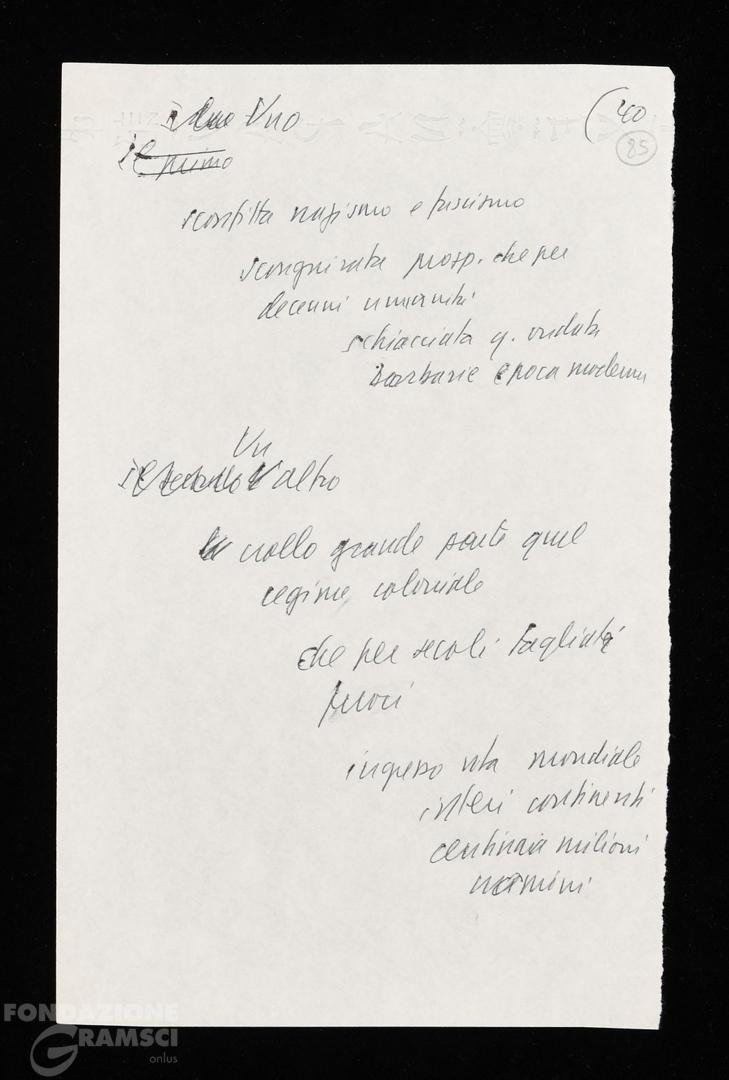 Uno
(40
85
il primo
sconfitta nazismo e fascismo
scongiurata prosp. che per
decenni umanità
schiacciata q. ondata
barbarie epoca moderna
Un
l'altro
crollo grande parte quel
regime coloniale
che per secoli tagliati
fuori
ingresso vita mondiale
interi continenti
centinaia milioni
uomini
FONDAZIONE
GRAMSCI
onlus